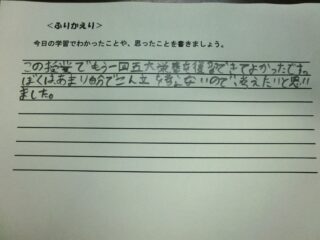 <ふりかえり>
今日の学習でわかったことや、思ったことを書きましょう。
この授業でもう一回五大栄養を復習できてよかったです。
ぼくは、あまり自分でこん立を考えないので、考えたいと思い
ました。